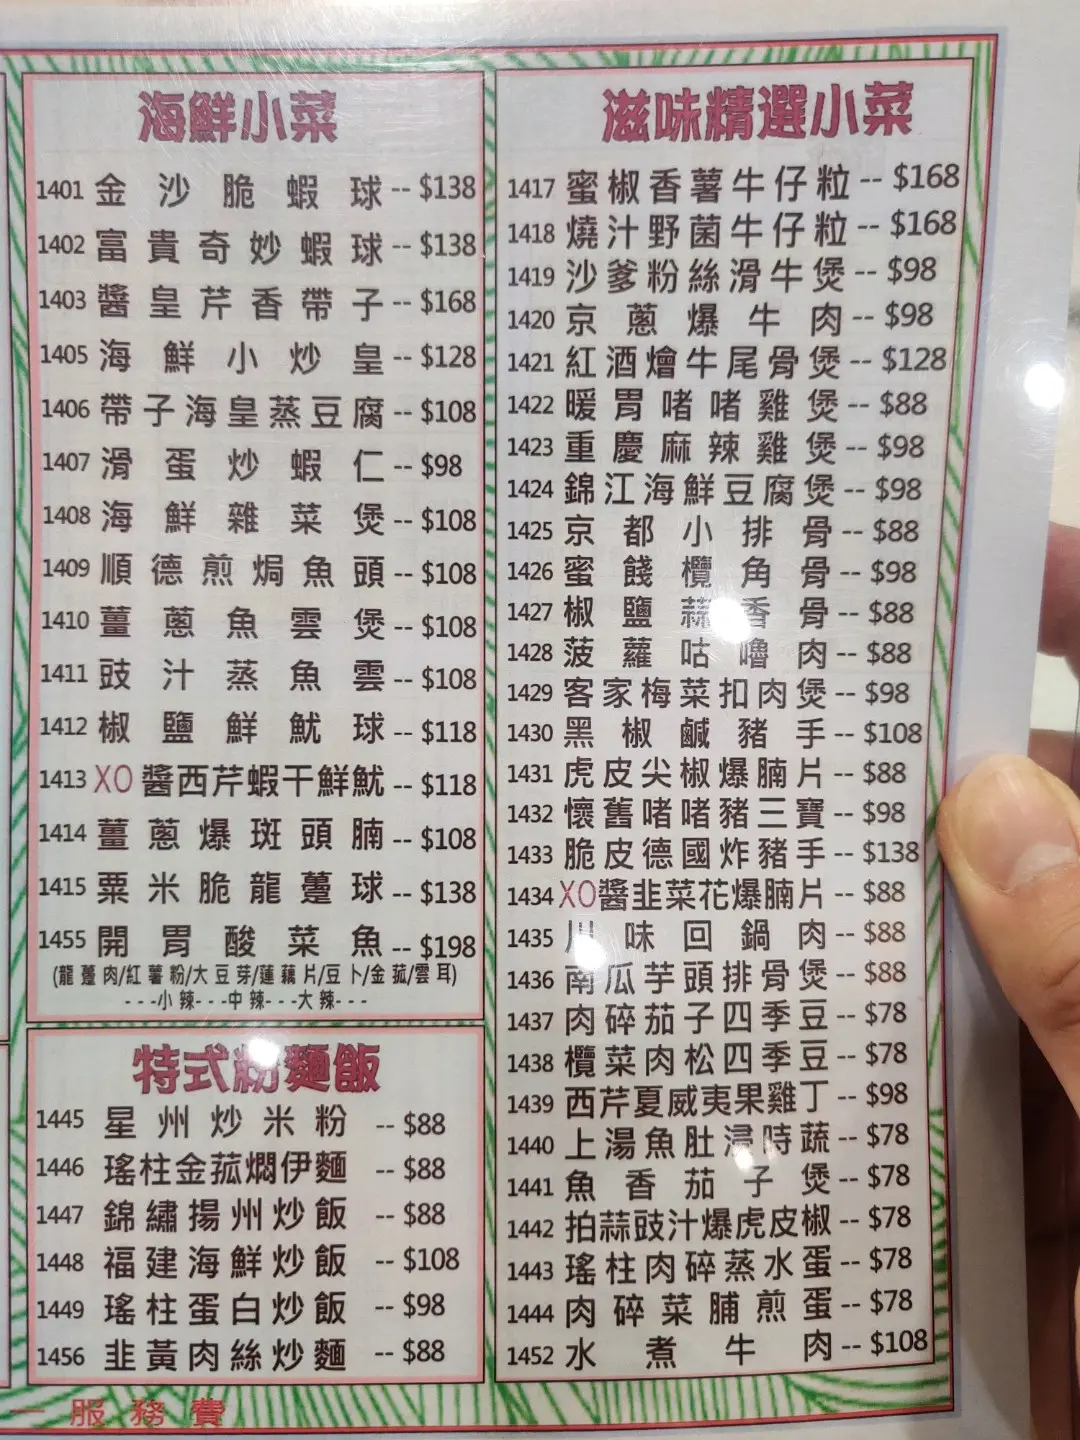 海鮮小菜
1401 金沙脆蝦球 -- $138
1402 富貴奇妙蝦球 -- $138
1403 醬皇芹香帶子 -- $168
1405 海鮮小炒皇 -- $128
1406 帶子海皇蒸豆腐 -- $108
1407 滑蛋炒蝦仁 -- $98
1408 海鮮雜菜煲 -- $108
1409 順德煎焗魚頭 -- $108
1410 薑蔥魚雲煲 -- $108
1411 豉汁蒸魚雲 -- $108
1412 椒鹽鮮魷球 -- $118
1413 XO醬西芹蝦干鮮魷 -- $118
1414 薑蔥爆斑頭腩 -- $108
1415 粟米脆龍躉球 -- $138
1455 開胃酸菜魚 -- $198
(龍躉肉/紅薯粉/大豆芽/蓮藕片/豆卜/金菰/雲耳)
---小辣---中辣---大辣---
特式粉麵飯
1445 星州炒米粉 -- $88
1446 瑤柱金菰燜伊麵 -- $88
1447 錦繡揚州炒飯 -- $88
1448 福建海鮮炒飯 -- $108
1449 瑤柱蛋白炒飯 -- $98
1456 韭黃肉絲炒麵 -- $88
滋味精選小菜
1417 蜜椒香薯牛仔粒 -- $168
1418 燒汁野菌牛仔粒 -- $168
1419 沙爹粉絲滑牛煲 -- $98
1420 京蔥爆牛肉 -- $98
1421 紅酒燴牛尾骨煲 -- $128
1422 暖胃啫啫雞煲 -- $88
1423 重慶麻辣雞煲 -- $98
1424 錦江海鮮豆腐煲 -- $98
1425 京都小排骨 -- $88
1426 蜜餞欖角骨 -- $98
1427 椒鹽蒜香骨 -- $88
1428 菠蘿咕嚕肉 -- $88
1429 客家梅菜扣肉煲 -- $98
1430 黑椒鹹豬手 -- $108
1431 虎皮尖椒爆腩片 -- $88
1432 懷舊啫啫豬三寶 -- $98
1433 脆皮德國炸豬手 -- $138
1434 XO醬韭菜花爆腩片 -- $88
1435 川味回鍋肉 -- $88
1436 南瓜芋頭排骨煲 -- $88
1437 肉碎茄子四季豆 -- $78
1438 欖菜肉松四季豆 -- $78
1439 西芹夏威夷果雞丁 -- $98
1440 上湯魚肚浸時蔬 -- $78
1441 魚香茄子煲 -- $78
1442 拍蒜豉汁爆虎皮椒 -- $78
1443 瑤柱肉碎蒸水蛋 -- $78
1444 肉碎菜脯煎蛋 -- $78
1452 水煮牛肉 -- $108
一服務費